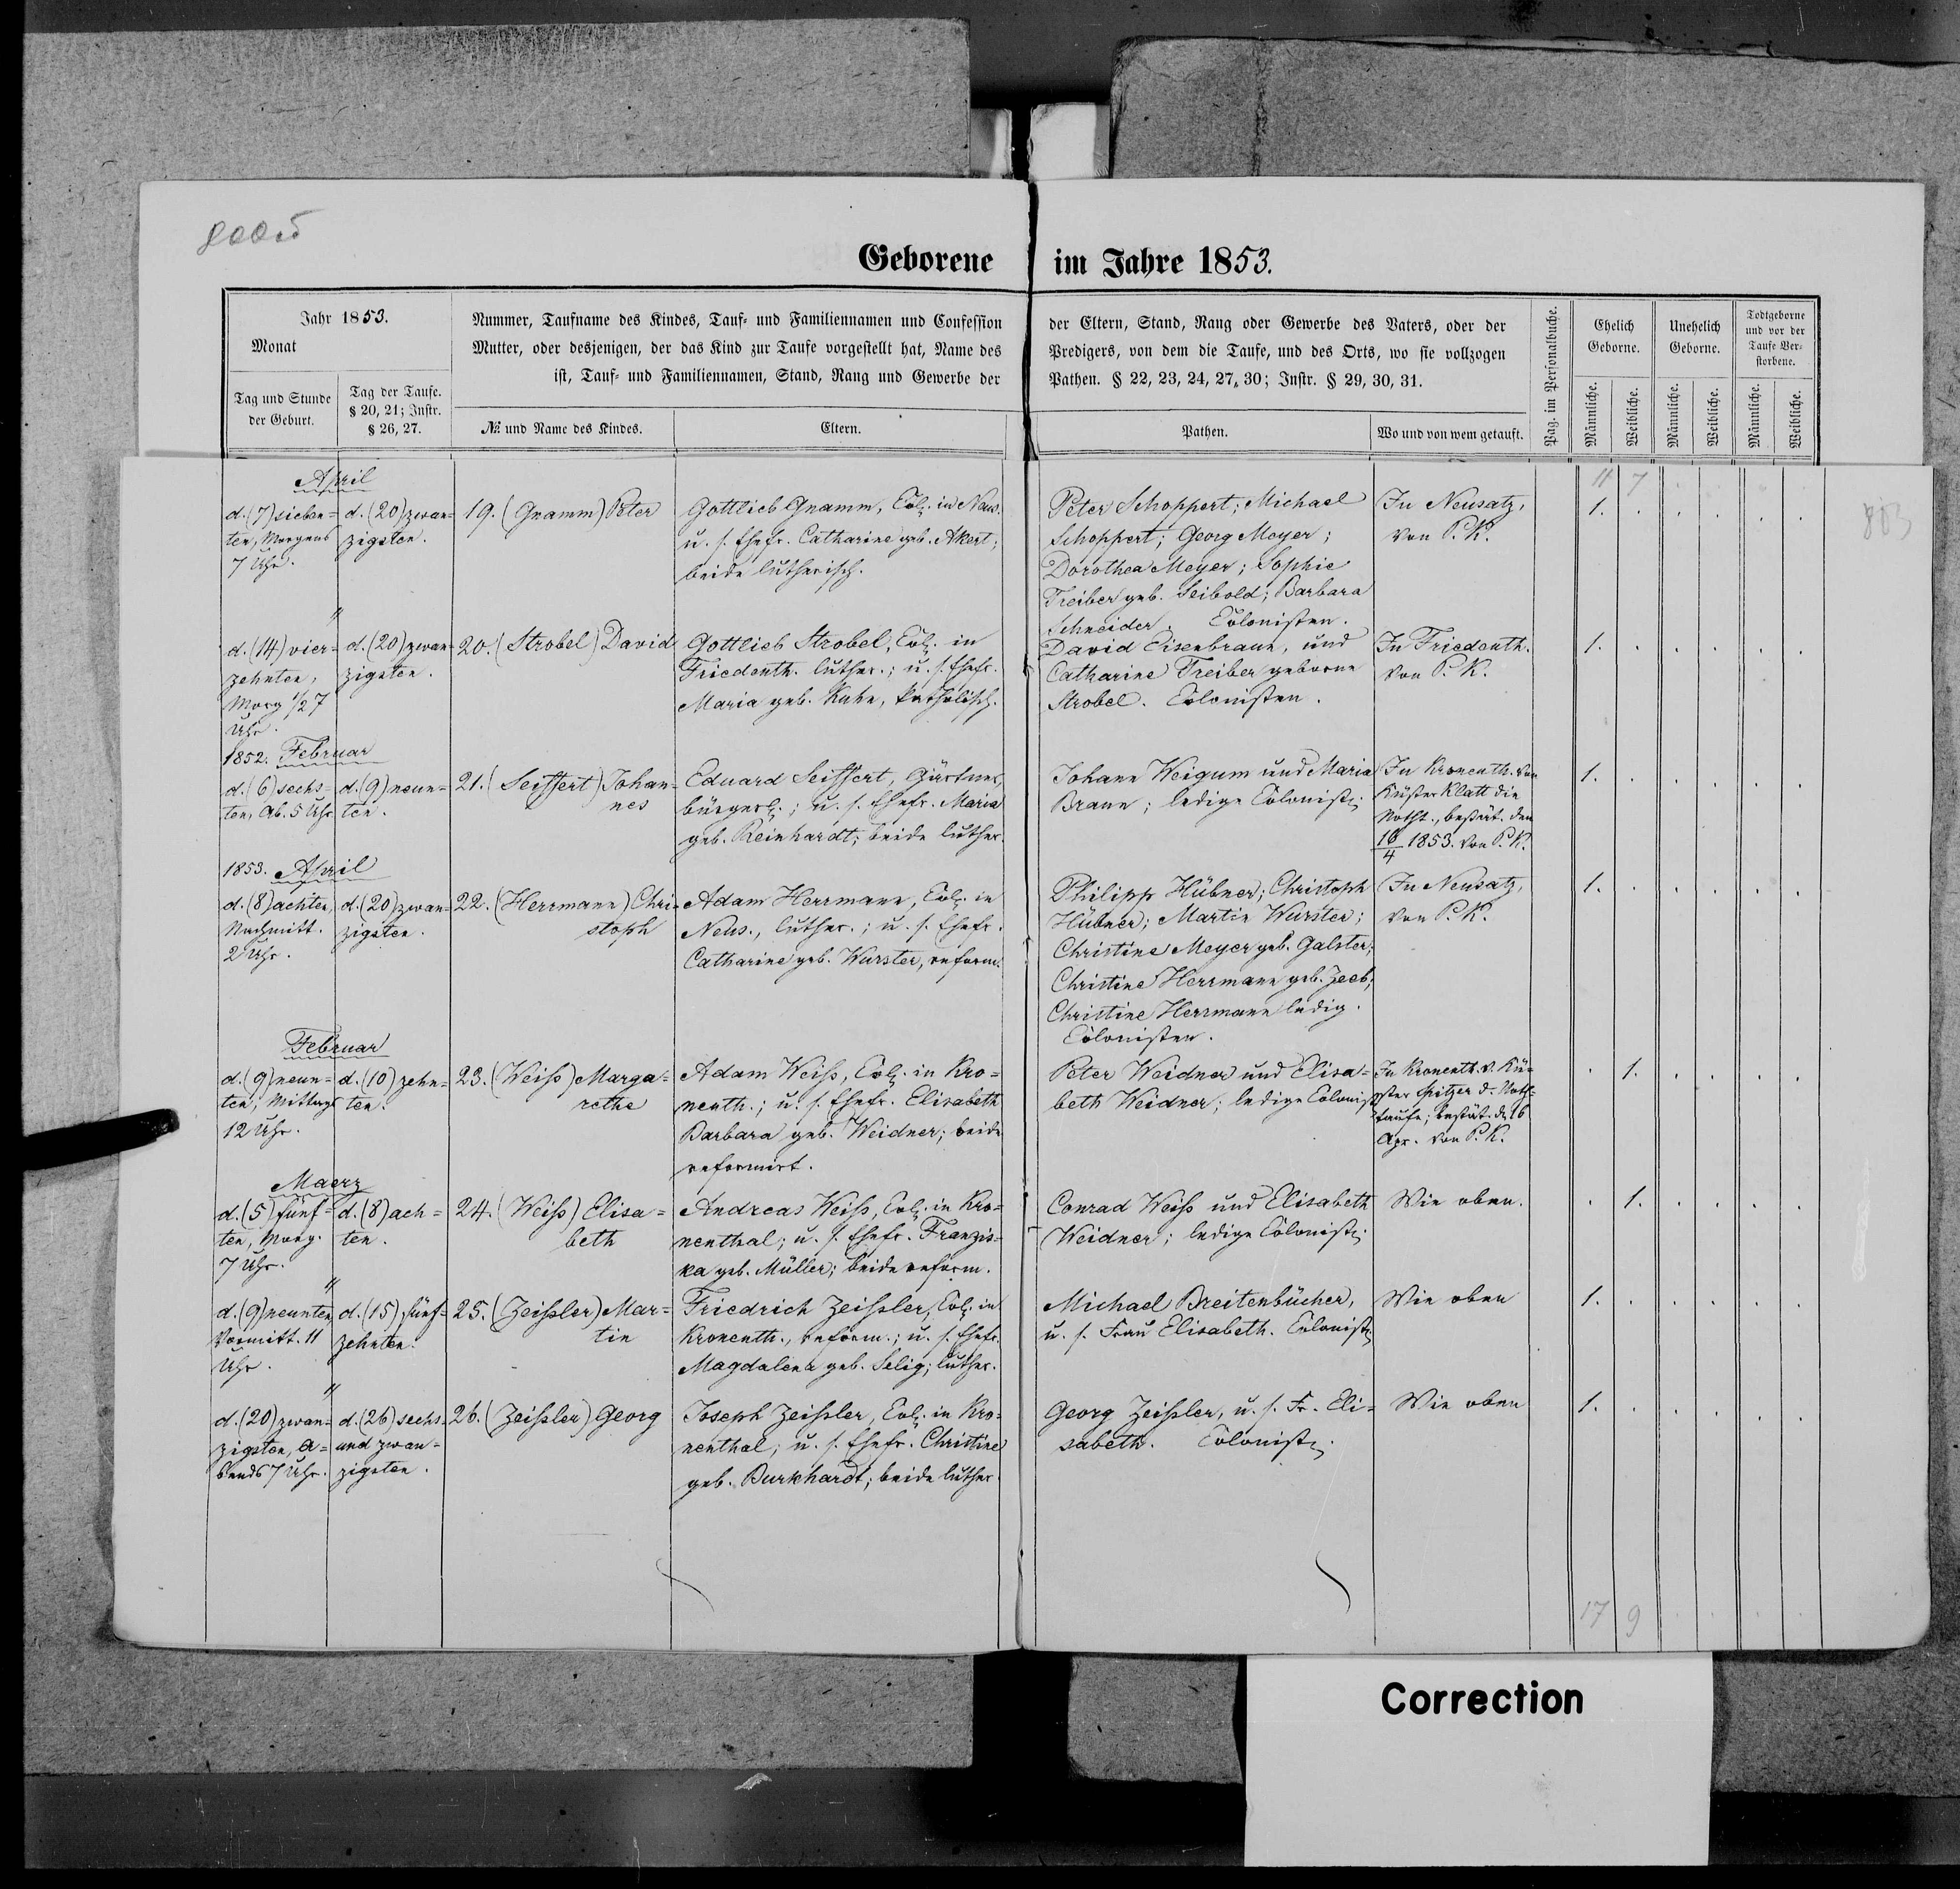 Geborene im Jahre 1853.
Jahr 1853.
Monat
Tag und Stunde
der Geburt.
Tag der Taufe.
§ 20, 21; Instr.
§ 26, 27.
Nummer, Taufname des Kindes, Tauf- und Familiennamen und Confession
Mutter, oder desjenigen, der das Kind zur Taufe vorgestellt hat, Name des
ist, Tauf- und Familiennamen, Stand, Rang und Gewerbe der
№ und Name des Kindes.
Eltern.
der Eltern, Stand, Rang oder Gewerbe des Vaters, oder der
Predigers, von dem die Taufe, und des Orts, wo sie vollzogen
Pathen. § 22, 23, 24, 27, 30; Instr. § 29, 30, 31.
Pathen.
Wo und von wem getauft.
Pag. im Personalbuche.
Ehelich
Geborne.
Unehelich
Geborne.
Todtgeborne
und vor der
Taufe Ver-
storbene.
Männliche.
Weibliche.
Männliche.
Weibliche.
Männliche.
Weibliche.
11 7
803
April
d. (7) sieben=
ten, Morgens
7 Uhr.
d. (20) zwan=
zigsten.
19. (Gramm) Peter
Gottlieb Gramm, Col. in Neus.
u. s. Ehefr. Catharine geb. Akert;
beide lutherisch.
Peter Schoppert; Michael
Schoppert; Georg Meyer;
Dorothea Meyer; Sophie
Treiber geb. Seibold; Barbara
Schneider. Colonisten.
In Neusatz,
von P. K.
1.
"
d. (14) vier=
zehnten,
Morg 1/2 7
Uhr.
d. (20) zwan=
zigsten.
20. (Strobel) David
Gottlieb Strobel, Col. in
Friedenth. luther.; u. s. Ehefr.
Maria geb. Kuhn, katholisch.
David Eisenbraun, und
Catharine Treiber geborne
Strobel. Colonisten.
In Friedenth.
von P. K.
1.
1852. Februar
d. (6) sechs=
ten, Ab. 5 Uhr
d. (9) neun=
ten.
21. (Seiffert) Johan=
nes
Eduard Seiffert, Gärtner,
bürgerl.; u. s. Ehefr. Maria
geb. Reinhardt; beide luther.
Johann Weigum und Maria
Braun; ledige Colonist.
In Kronenth. von
Küster Klatt die
Notht., bestät. den
16/4 1853. von P. K.
1.
1853. April
d. (8) achten,
Nachmitt.
2 Uhr.
d. (20) zwan=
zigsten.
22. (Herrmann) Chri=
stoph
Adam Herrmann, Col. in
Neus., luther.; u. s. Ehefr.
Catharine geb. Wurster, reform.
Philipp Hübner; Christoph
Hübner; Martin Wurster;
Christine Meyer geb. Galster;
Christine Herrmann geb. Zeeb;
Christine Herrmann ledig.
Colonisten.
In Neusatz,
von P. K.
1.
Februar
d. (9) neun=
ten, Mittags
12 Uhr.
d. (10) zehn=
ten.
23. (Weiss) Marga=
rethe
Adam Weiss, Col. in Kro=
nenth.; u. s. Ehefr. Elisabeth
Barbara geb. Weidner; beide
reformirt.
Peter Weidner und Elisa=
beth Weidner; ledige Colonist.
In Kronenth. v. Kü=
ster Spitzer d. Noth=
taufe; bestät. d. 16
Apr. von P. K.
1.
Maerz
d. (5) fünf=
ten, Morg.
7 Uhr.
d. (8) ach=
ten.
24. (Weiss) Elisa=
beth
Andreas Weiss, Col. in Kro=
nenthal; u. s. Ehefr. Franzis=
ka geb. Müller; beide reform.
Conrad Weiss und Elisabeth
Weidner; ledige Colonist.
Wie oben.
1.
"
d. (9) neunten
Vormitt. 11
Uhr.
d. (15) fünf=
zehnten.
25. (Zeissler) Mar=
tin
Friedrich Zeissler, Col. in
Kronenth., reform.; u. s. Ehefr.
Magdalena geb. Selig; luther.
Michael Breitenbücher,
u. s. Frau Elisabeth. Colonist.
Wie oben
1.
"
d. (20) zwan=
zigsten, A=
bends 7 Uhr.
d. (26) sechs=
und zwan=
zigsten.
26. (Zeissler) Georg
Joseph Zeissler, Col. in Kro=
nenthal; u. s. Ehefr. Christine
geb. Burkhardt; beide luther.
Georg Zeissler, u. s. Fr. Eli=
sabeth. Colonist.
Wie oben
1.
17 9
Correction